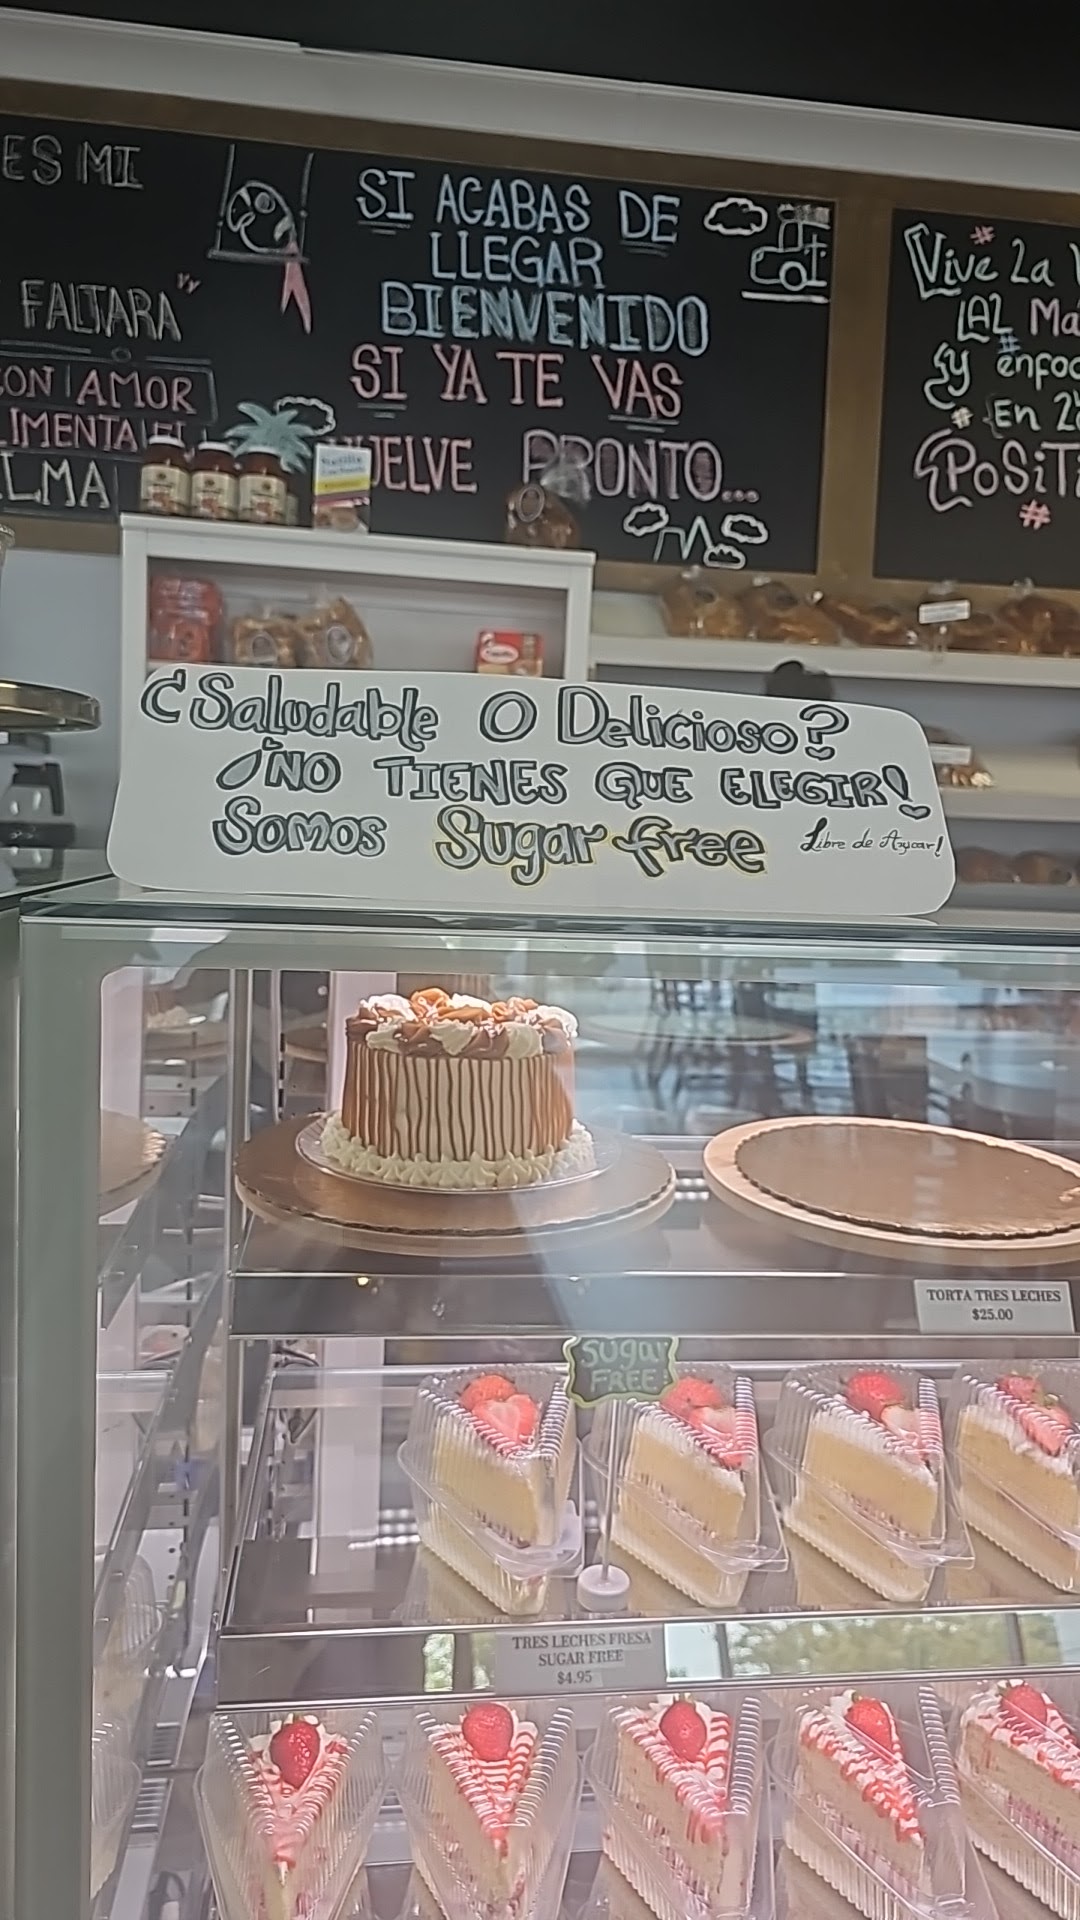 ES MI
FALTARA
CON AMOR
LMA
SI ACABAS DE
LLEGAR
BIENVENIDO
SI YA TE VAS
VUELVE PRONTO...
Vive La
Má
y enfoc
En
POSITI
¿Saludable O Delicioso?
¡NO TIENES QUE ELEGIR!
Somos Sugar free Libre de Azucar!
TORTA TRES LECHES
$25.00
SUgar
FREE
TRES LECHES FRESA
SUGAR FREE
$4.95